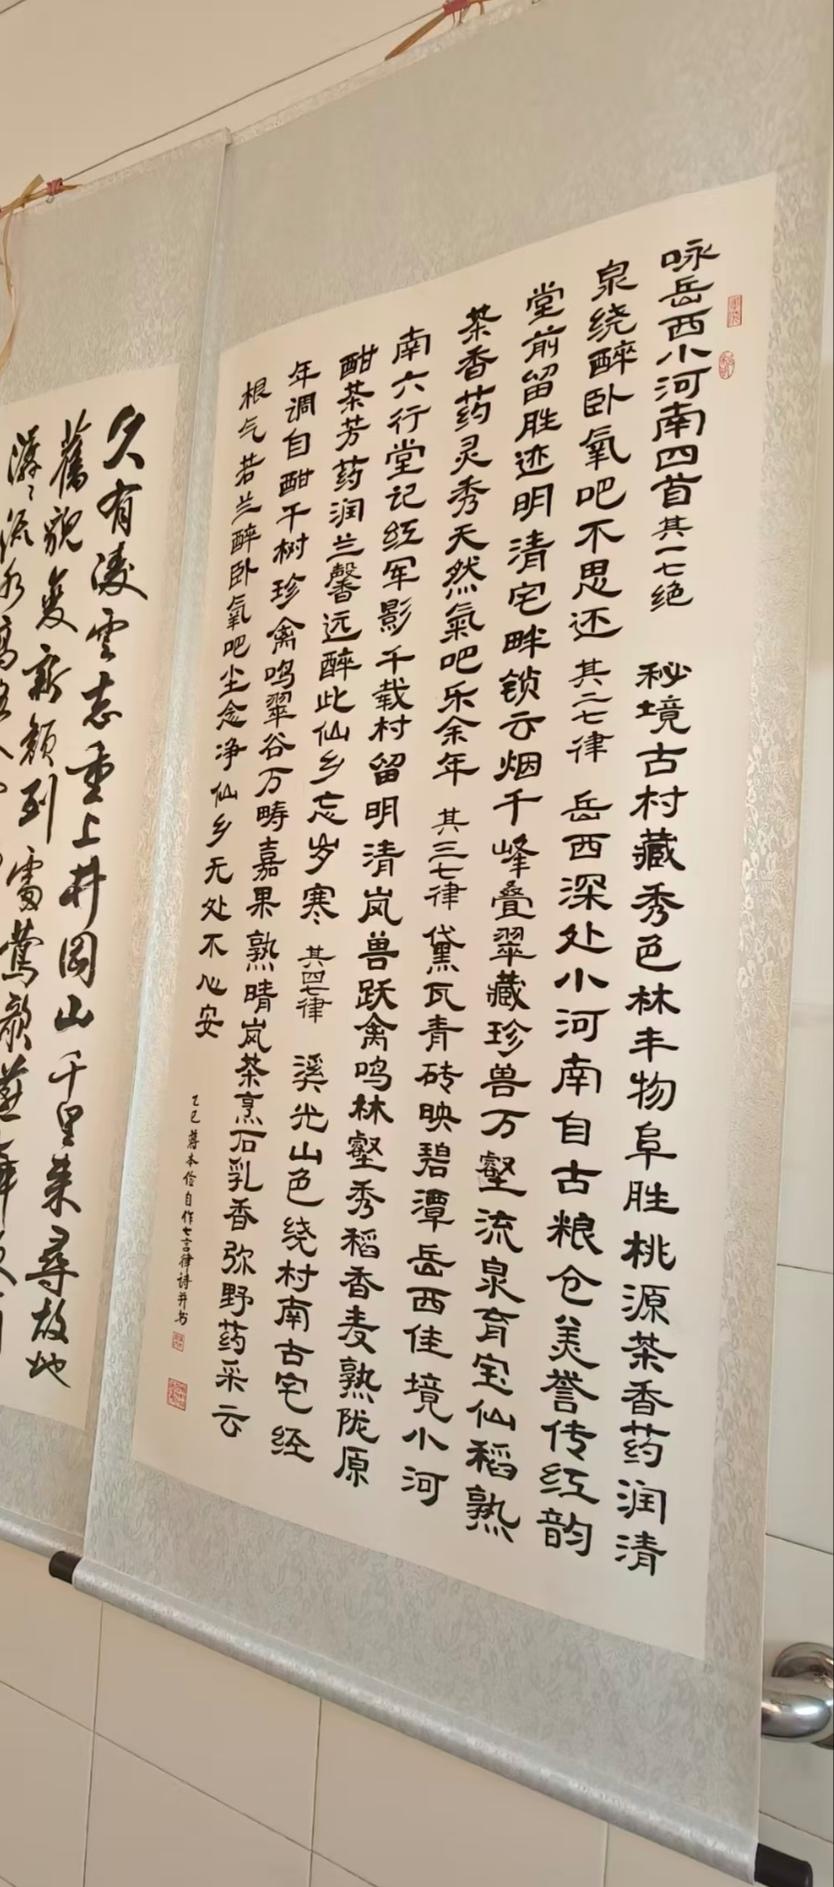 咏岳西小河南四首其一七绝 秘境古村藏秀色林丰物阜胜桃源茶香药润清
泉绕醉卧氧吧不思还 其二七律 岳西深处小河南自古粮仓美誉传红韵
堂前留胜迹明清宅畔锁云烟千峰叠翠藏珍兽万壑流泉育宝仙稻熟
茶香药灵秀天然氧吧乐余年 其三七律 黛瓦青砖映碧潭岳西佳境小河
南六行堂记红军影千载村留明清岚兽跃禽鸣林壑秀稻香麦熟陇原
酣茶芳药润兰馨远醉此仙乡忘岁寒 其四七律 溪光山色绕村南古宅经
年调自酣千树珍禽鸣翠谷万畴嘉果熟晴岚茶烹石乳香弥野药采云
根气若兰醉卧氧吧尘念净仙乡无处不心安
乙巳蒋本俭自作七言律诗并书
久有凌云志重上井冈山千里来寻故地
旧貌变新颜到处莺歌燕舞